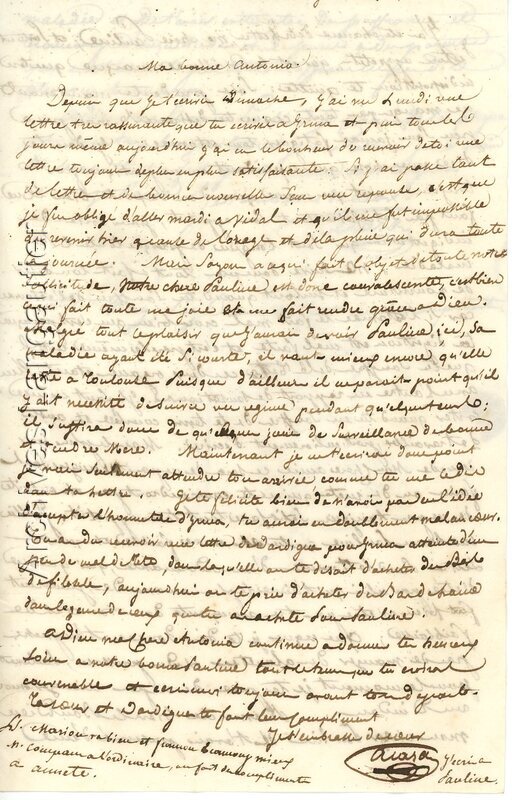 Ma bonne Antonia.
Depuis que je t'ecrivis Dimanche, j'ai vu Lundi une
lettre tres rassurante que tu ecrivis a et pour tous les
jours meme aujourdhui j'ai eu le bonheur de recevoir de toi une
lettre toujours de plus en plus satisfaisante. Si j'ai passé tant
de lettres et de bonnes nouvelles sans une reponse, c'est que
je fus obligé d'aller mardi a Vidal et qu'il me fut impossible
de revenir hier a cause de l'orage et de la pluie qui dura toute
la journée. Mais a ce qui fait l'objet de toute notre
sollicitude, notre chere Pauline est donc convalescente, c'est bien
qui fait toute ma joie et me fait rendre grace a Dieu.
Malgré tout le plaisir que j'aurai de voir Pauline ici, sa
maladie ayant été si courte, il vaut mieux encore qu'elle
reste a Toulouse Puisque d'ailleurs il ne parait point qu'il
y ait necessité de suivre un regime pendant quelque tems;
il suffira donc de quelque jours de surveillance de bonne
et tendre Mere. Maintenant je ne t'ecrirai donc point
je vais seulement attendre ton arrivée comme tu me le dis
dans ta lettre. Je te felicite bien de n'avoir pas eu l'idée
d'accepter l'honneteté d' tu aurais eu doublement mal au cœur.
On a du recevoir une lettre de Dardigue pour atteinte d'un
peu de mal de tete, dans laquelle on te disait d'acheter des Bas
de filoselle, aujourdhui on te prie d'acheter des Bas de
dans le genre de ceux qu'on a acheté pour Pauline.
Adieu ma chere Antonia continue a donner tes
soins a notre bonne Pauline tout le tems que tu croiras
convenable et ecris moi toujours avant ton depart.
Ta sœur et Dardigue te font leur compliment
Je t'embrasse de cœur
J'ecris a
Pauline.
Marion va bien et beaucoup mieux
Mr a l'ordinaire, on fait des compliments
a
Archives: angautier